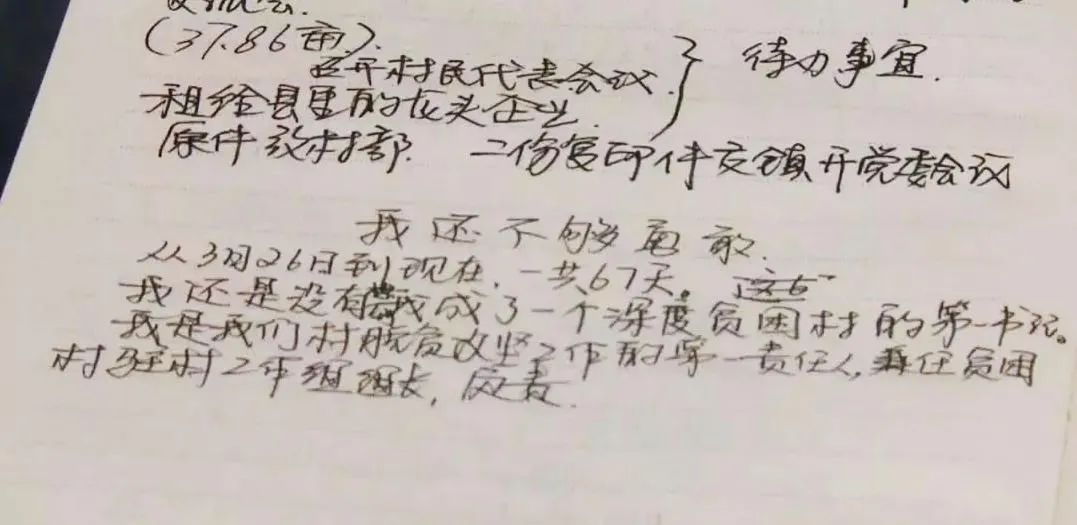 (37.86亩).
召开村民代表会议. } 待办事宜.
租给县里的龙头企业.
原件放村部. 二份复印件交镇开党委会议
我还不够勇敢.
从3月26日到现在,一共67天。这
我还是没有 我成了一个深度贫困村的第一书记。
我是我们村脱贫攻坚工作的第一责任人,兼任贫困
村驻村工作组组长,负责.